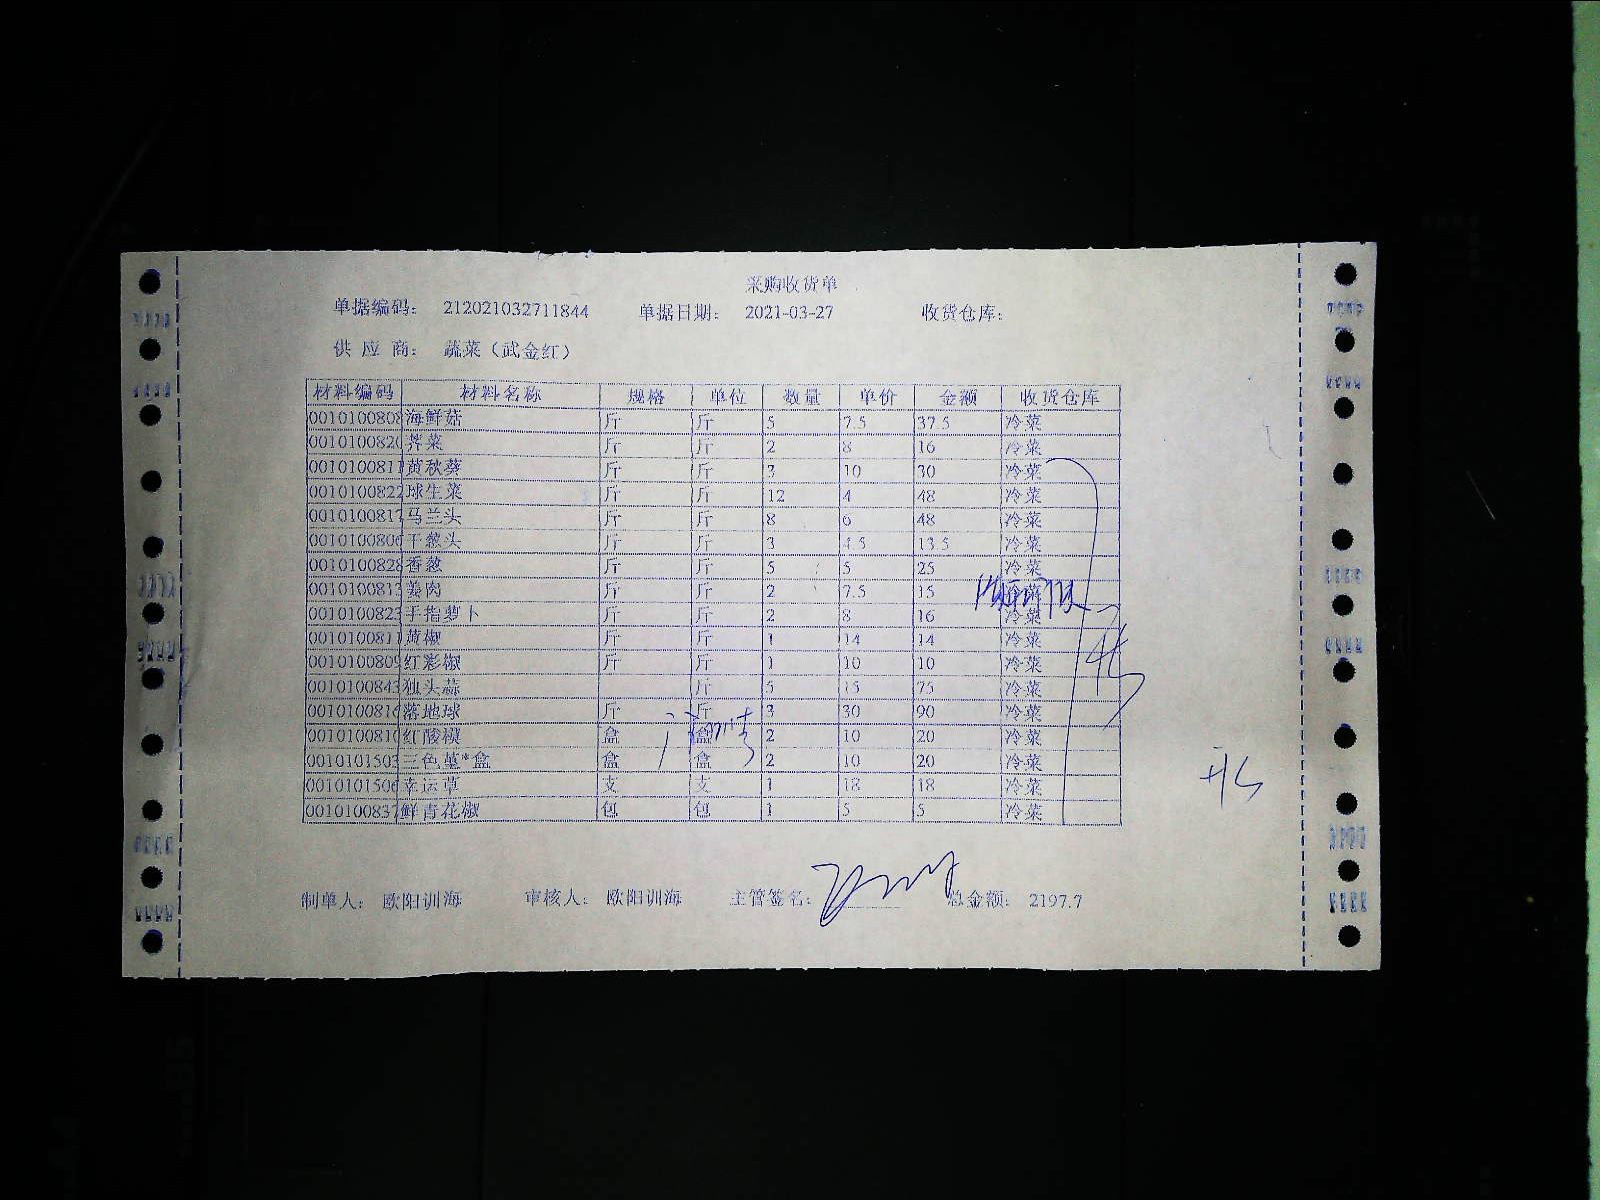 采购收货单
单据编码： 212021032711844 单据日期： 2021-03-27 收货仓库：
供 应 商： 蔬菜（武金红）
材料编码 材料名称 规格 单位 数量 单价 金额 收货仓库
0010100808 海鲜菇 斤 斤 5 7.5 37.5 冷菜
001010082 荠菜 斤 斤 2 8 16 冷菜
0010100811 黄秋葵 斤 斤 3 10 30 冷菜
0010100822 球生菜 斤 斤 12 4 48 冷菜
0010100817 马兰头 斤 斤 8 6 48 冷菜
0010100806 干葱头 斤 斤 3 4.5 13.5 冷菜
0010100828 香葱 斤 斤 5 5 25 冷菜
0010100813 姜肉 斤 斤 2 7.5 15
0010100823 手指萝卜 斤 斤 2 8 16 冷菜
0010100811 黄椒 斤 斤 1 14 14 冷菜
0010100809 红彩椒 斤 斤 1 10 10 冷菜
0010100843 独头蒜 斤 5 15 75 冷菜
001010081 落地球 斤 斤 3 30 90 冷菜
001010081 红酸模 盒 盒 2 10 20 冷菜
0010101503 三色堇*盒 盒 盒 2 10 20 冷菜
0010101506 幸运草 支 支 1 18 18 冷菜
0010100837 鲜青花椒 包 包 1 5 5 冷菜
制单人： 欧阳训海 审核人： 欧阳训海 主管签名： 总金额： 2197.7